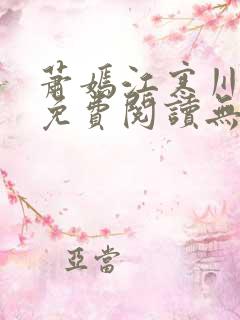 蕭嫣江寒川
免費閱讀無
亞當